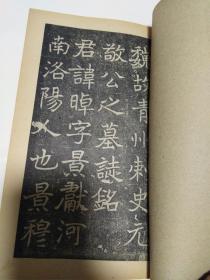 魏故青州刺史元
敬公之墓誌銘
君諱晫字景獻河
南洛陽人也景穆